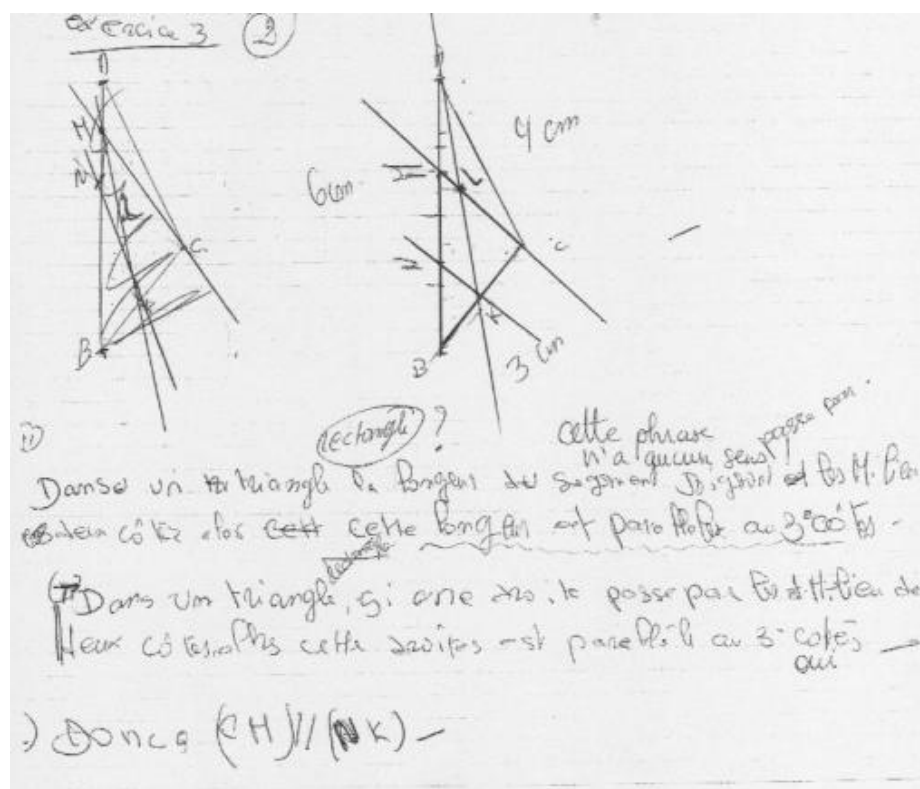 exercice 3 2
A A
H 4 cm
N 6cm I L
C C
N
K K
B B 3 cm
1) rectangle ? cette phrase
n'a aucun sens passe par.
Danse un triangle la longeur du segment et les Milieu
deux côtés alor cett cette longeur est parallele au 3e côtés.
rectangle
Dans un triangle, si one droite passe par les Milieu de
deux côtés alors cette droites est parallèle au 3e cotés
oui
.) Donc (CH)//(NK)